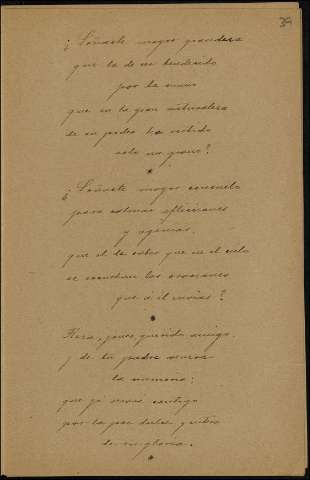 39
¿Soñaste mayor grandeza
que la de ser bendecido
por la mano
que en la gran naturaleza
de su poder ha vertido
solo un grano?
¿Soñaste mayor consuelo
para calmar aflicciones
y agonías,
que el de saber que en el cielo
se escuchan las oraciones
que á él envías?
Reza, pues, querido amigo,
y de tu padre
la memoria;
que ya
por la paz dulce
de su gloria.